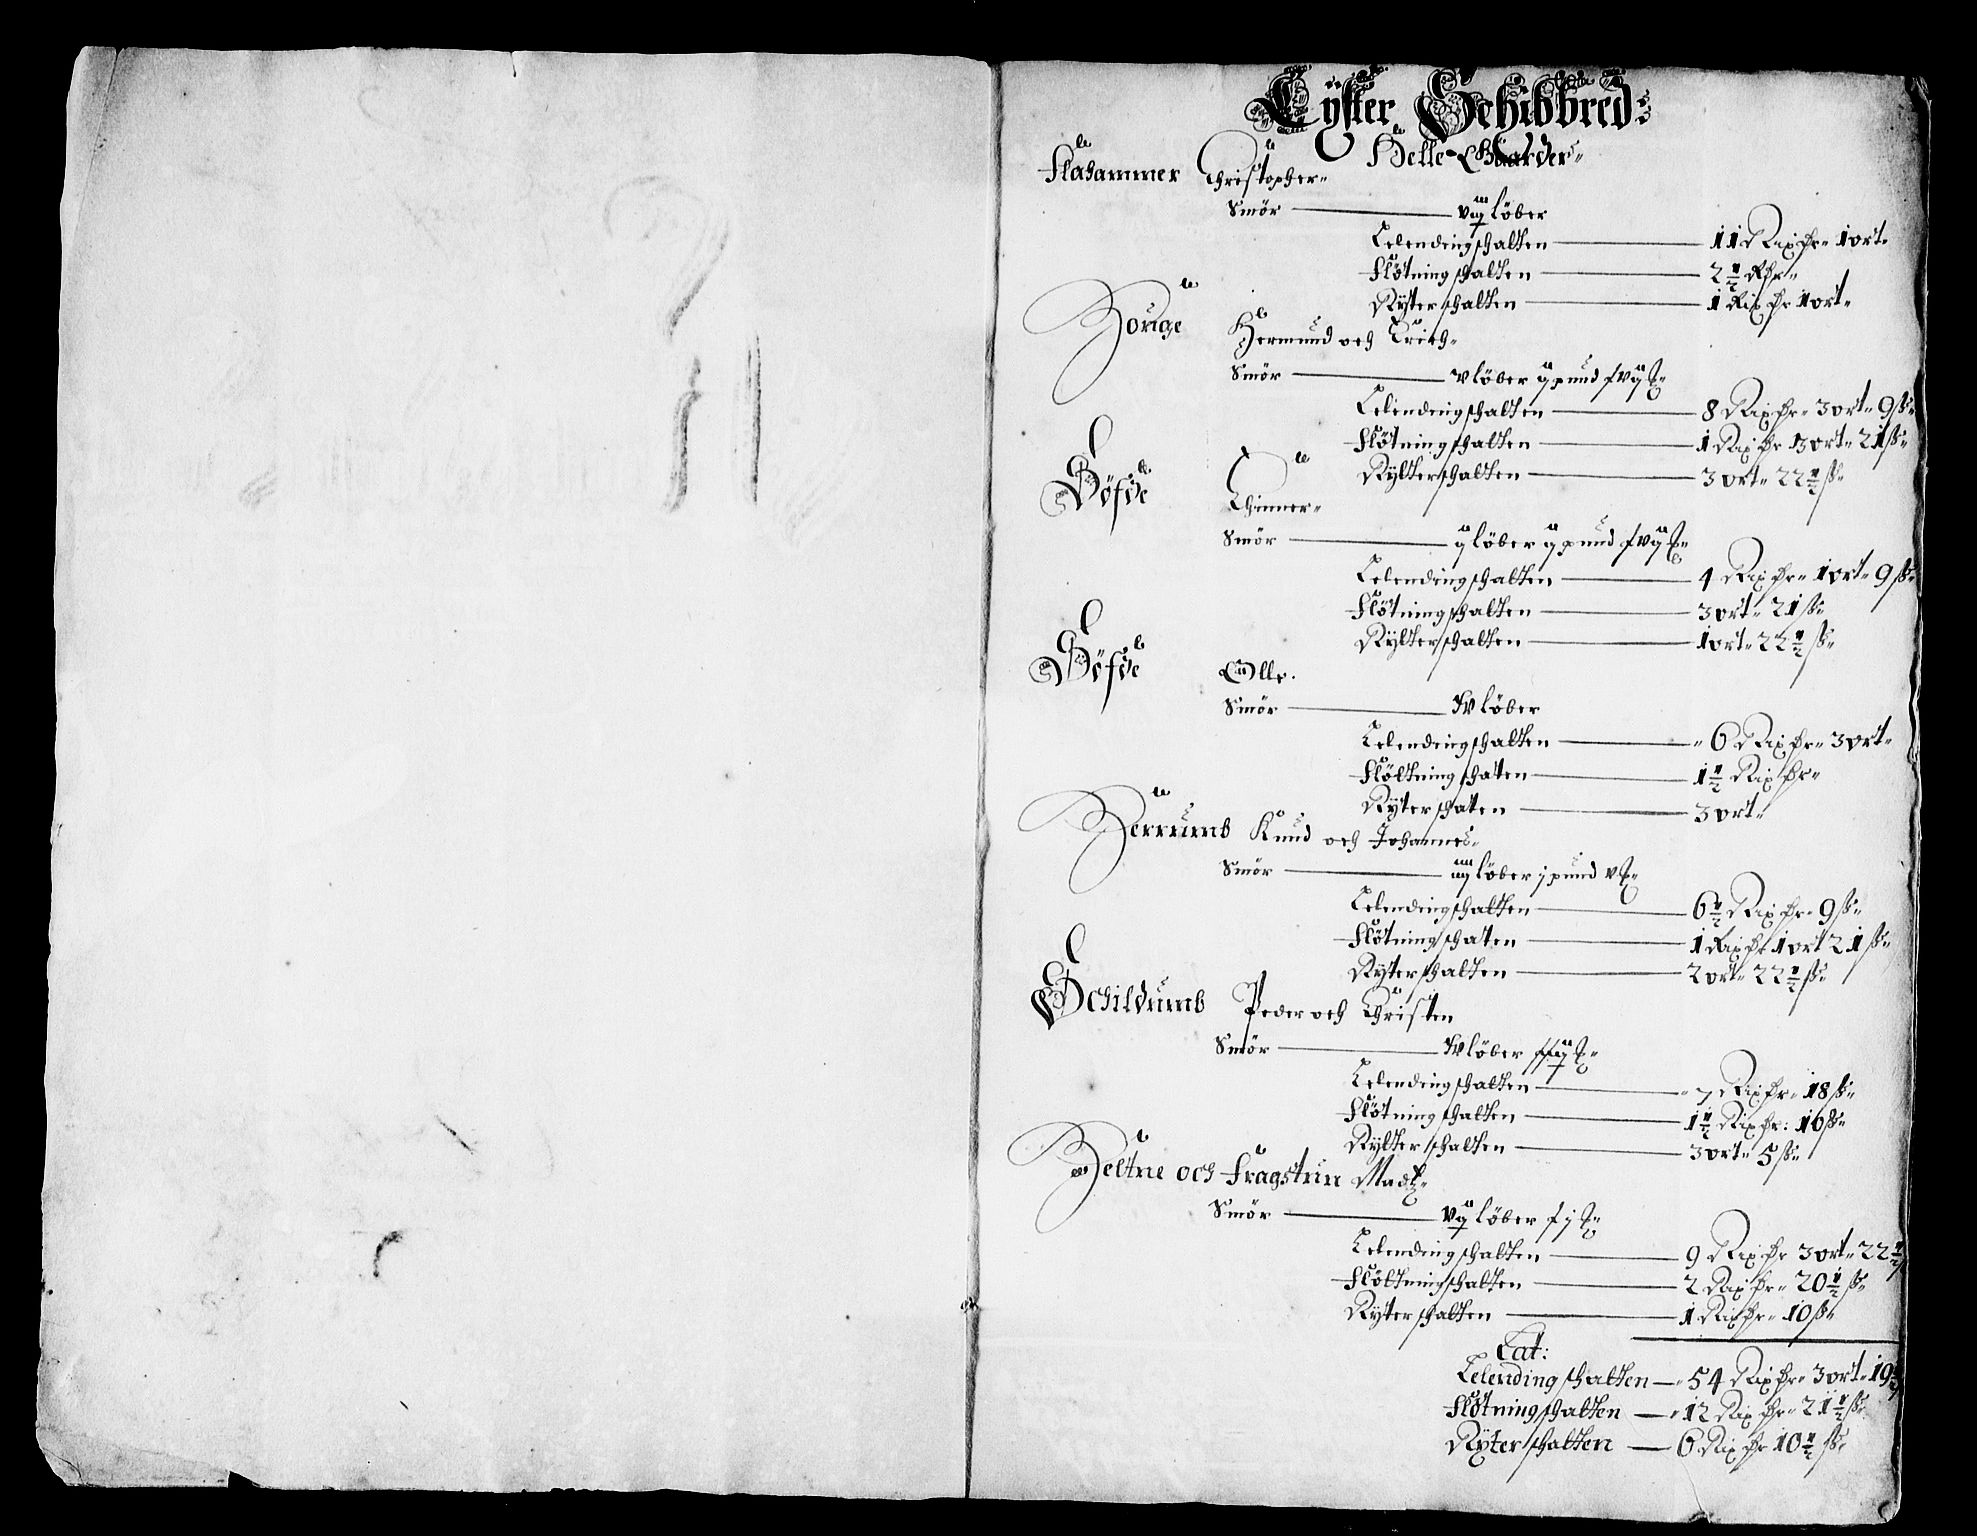 Lyster Schibbred:
Helle Gaarder
Flahammer Christopher
Smör vij löber
Lelendingschatten 11 Rixdr 1 ort
Flötningschatten 2 1/2 Rdr
Rytterschatten 1 Rix dr 1 ort
Houge Hermund och Erich
Smör v löber ij pund
Lelendingschatten 8 Rixdr 3 ort 9 ß
Flötningschatten 1 Rixdr 3 ort 21 ß
Rytterschatten 3 ort 22 1/2 ß
Böfde
Smör ij löber ij pund
Lelendingschatten 4 Rixdr 1 ort 9 ß
Flötningschatten 3 ort 21 ß
Rytterschatten 1 ort 22 1/2 ß
Böfde Olle
Smör löber
Lelendingschatten 6 Rixdr 3 ort
Flöttningschaten 1 1/2 Rixdr
Ryterschaten 3 ort
Herrumb Knud och Johannes
Smör iiij löber j pund v
Lelendingschatten 6 1/2 Rixdr 9 ß
Flötningschaten 1 Rixdr 1 ort 21 ß
Rytterschatten 2 ort 22 1/2 ß
Schildumb Peder och Christen
Smör löber
Lelendingschatten 7 Rixdr 18 ß
Flötningschatten 1 1/2 Rixdr: 16 ß
Rytterschatten 3 ort 5 ß
Heltne och Madtz
Smör vij löber
Lelendingschatten 9 Rixdr 3 ort 22 1/2
Flöttningschatten 2 Rixdr 20 1/2 ß
Ryterschatten 1 Rixdr 10 ß
Lat:
Lelendingschatten 54 Rixdr 3 ort 19 1/2
Flötningschatten 12 Rixdr 21 1/2 ß
Ryterschatten 6 Rixdr 10 1/2 ß